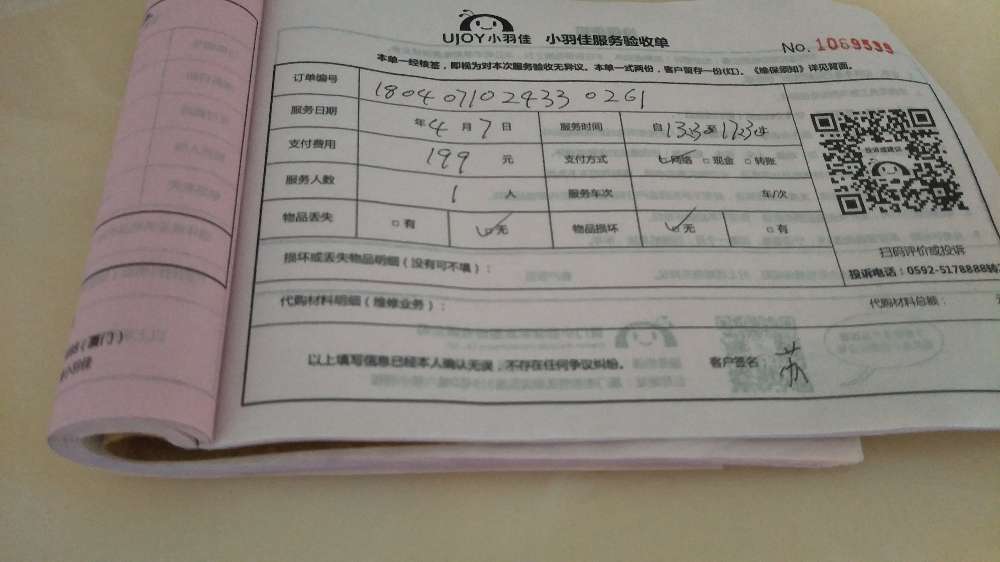 UJOY小羽佳 小羽佳服务验收单 No. 1069539
本单一经核签，即视为对本次服务验收无异议。本单一式两份，客户留存一份(红)。《维保须知》详见背面。
订单编号 180407102433 0261
服务日期 年4月7日 服务时间 自1323至1723止
支付费用 199 元 支付方式 ☑网络 □现金 □转账
服务人数 1 人 服务车次 车/次
物品丢失 □有 ☑无 物品损坏 ☑无 □有
投诉或建议
扫码评价或投诉
损坏或丢失物品明细（没有可不填）：
投诉电话：0592-5178888转
代购材料明细（维修业务）： 代购材料总额：
以上填写信息已经本人确认无误，不存在任何争议纠纷。 客户签名 苏